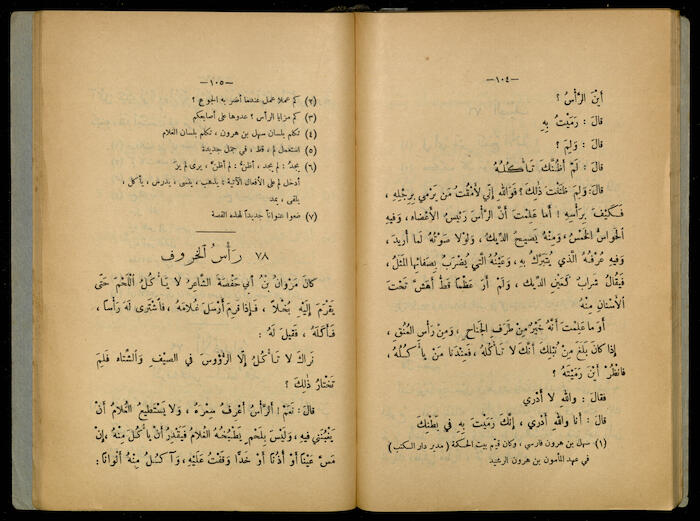 — ١٠٤ —
أَيْنَ الرَّأْسُ ؟
قالَ : رَمَيْتُ بِهِ
قالَ : وَلِمَ ؟
قالَ : لَمْ أَظُنَّكَ تَأْكُلُهُ
قالَ: وَلِمَ ظَنَنْتَ ذٰلِكَ ؟ فَوَاللهِ إِنِّي لَأَمْقُتُ مَنْ يَرْمِي بِرِجْلِهِ ،
فَكَيْفَ بِرَأْسِهِ ! أَما عَلِمْتَ أَنَّ الرَّأْسَ رَئِيسُ الأَعْضَاءِ ، وَفِيهِ
الْحَواسُّ الْخَمْسُ ، وَمِنْهُ يَصِيحُ الدِّيكُ ، وَلَوْلا صَوْتُهُ لَما أُرِيدَ ،
وَفِيهِ عُرْفُهُ الَّذي يُتَبَرَّكُ بِهِ ، وَعَيْنُهُ الَّتي يُضْرَبُ بِصَفائِها الْمَثَلُ ،
فَيُقالُ شَرابٌ كَعَيْنِ الدِّيكِ ، وَلَمْ أَرَ عَظْماً قَطُّ أَهَشَّ تَحْتَ
الأَسْنانِ مِنْهُ
أَوَ ما عَلِمْتَ أَنَّهُ خَيْرٌ مِنْ طَرَفِ الْجَناحِ ، وَمِنْ رَأْسِ الْعُنُقِ ،
إِذا كانَ بَلَغَ مِنْ نُبْلِكَ أَنَّكَ لا تَأْكُلُهُ ، فَعِنْدَنا مَنْ يَأْكُلُهُ ،
فَانْظُرْ أَيْنَ رَمَيْتَهُ ؟
فقالَ : وَاللهِ لا أَدْري
قالَ : أَنا وَاللهِ أَدْري ، إِنَّكَ رَمَيْتَ بِهِ في بَطْنِكَ
(١) سهل بن هرون فارسي ، وكان قيّم بيت الحكمة ( مدير دار الكتب )
في عهد المأمون بن هرون الرشيد
— ١٠٥ —
(٢) كم عملا عمل عندما أضر به الجوع ؟
(٣) كم مزايا الرأس ؟ عدوها على أصابعكم
(٤) تكلم بلسان سهل بن هرون ، تكلم بلسان الغلام
(٥) استعمل لم ، قط ، في جمل جديدة
(٦) يجدُ : لم يجد ، أظنُّ : لم أظنَّ ، يرى لم يرَ
أدخل لم على الأفعال الآتية : يذهب ، ينسى ، يدرس ، يأكل ،
يلقى ، يمد
(٧) ضعوا عنواناً جديداً لهذه القصة
٧٨ رَأْسُ الْخَروفِ
كانَ مَرْوانُ بْنُ أَبي حَفْصَةَ الشّاعِرُ لا يَأْكُلُ اللَّحْمَ حَتَّى
يَقْرَمَ إِلَيْهِ بُخْلاً ، فَإِذا قَرِمَ أَرْسَلَ غُلامَهُ ، فَاشْتَرى لَهُ رَأْساً ،
فَأَكَلَهُ ، فَقيلَ لَهُ :
نَراكَ لا تَأْكُلُ إِلّا الرُّؤُوسَ في الصَّيْفِ وَالشِّتاءِ فَلِمَ
تَخْتارُ ذٰلِكَ ؟
قالَ : نَعَمْ ! الرَّأْسُ أَعْرِفُ سِعْرَهُ ، وَلا يَسْتَطيعُ الْغُلامُ أَنْ
يَغْبُنَني فيهِ ، وَلَيْسَ بِلَحْمٍ يَطْبُخُهُ الْغُلامُ فَيَقْدِرُ أَنْ يَأْكُلَ مِنْهُ ، إِنْ
مَسَّ عَيْناً أَوْ أُذُناً أَوْ خَدّاً وَقَفْتُ عَلَيْهِ ، وَآكُلُ مِنْهُ أَلْواناً :